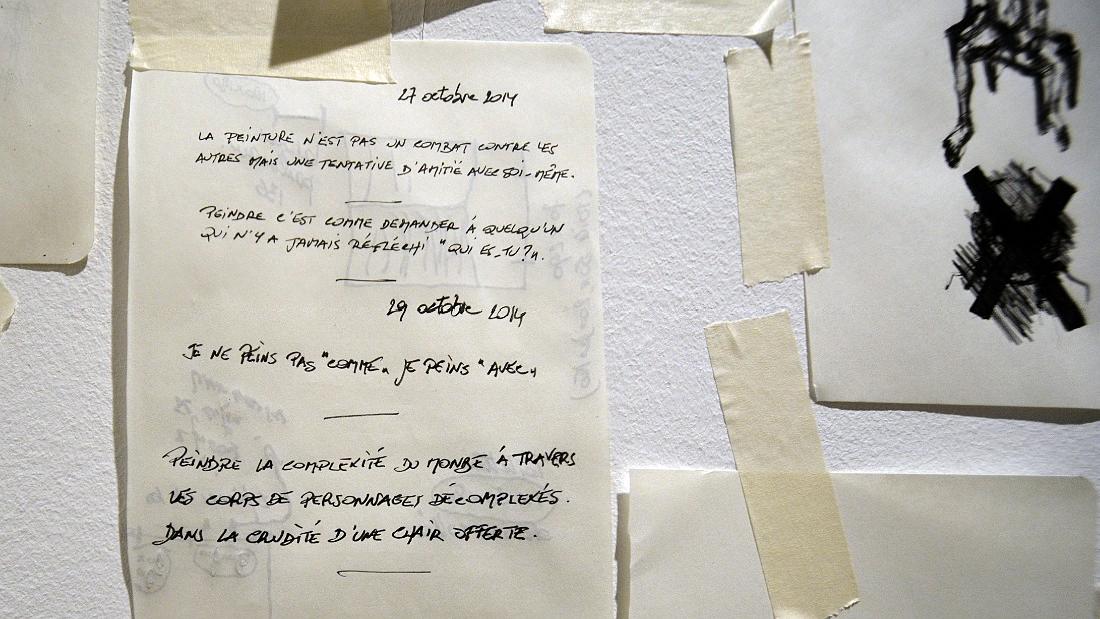 27 octobre 2014
LA PEINTURE N'EST PAS UN COMBAT CONTRE LES
AUTRES MAIS UNE TENTATIVE D'AMITIÉ AVEC SOI-MÊME.
PEINDRE C'EST COMME DEMANDER À QUELQU'UN
QUI N'Y A JAMAIS RÉFLÉCHI "QUI ES-TU?".
29 octobre 2014
JE NE PEINS PAS "COMME" JE PEINS "AVEC"
PEINDRE LA COMPLEXITÉ DU MONDE À TRAVERS
LES CORPS DE PERSONNAGES DÉCOMPLEXÉS.
DANS LA CRUDITÉ D'UNE CHAIR OFFERTE.